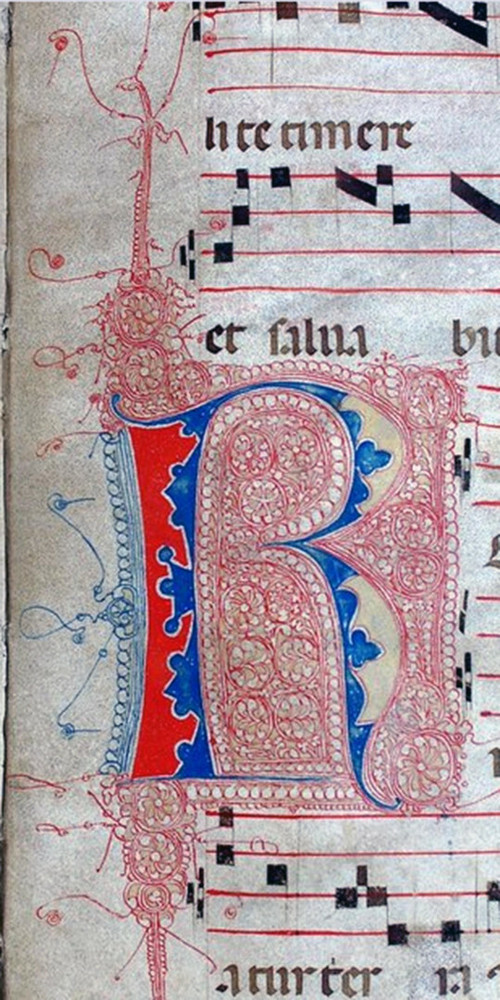 li te timere
et salua bu
R
aturter ra